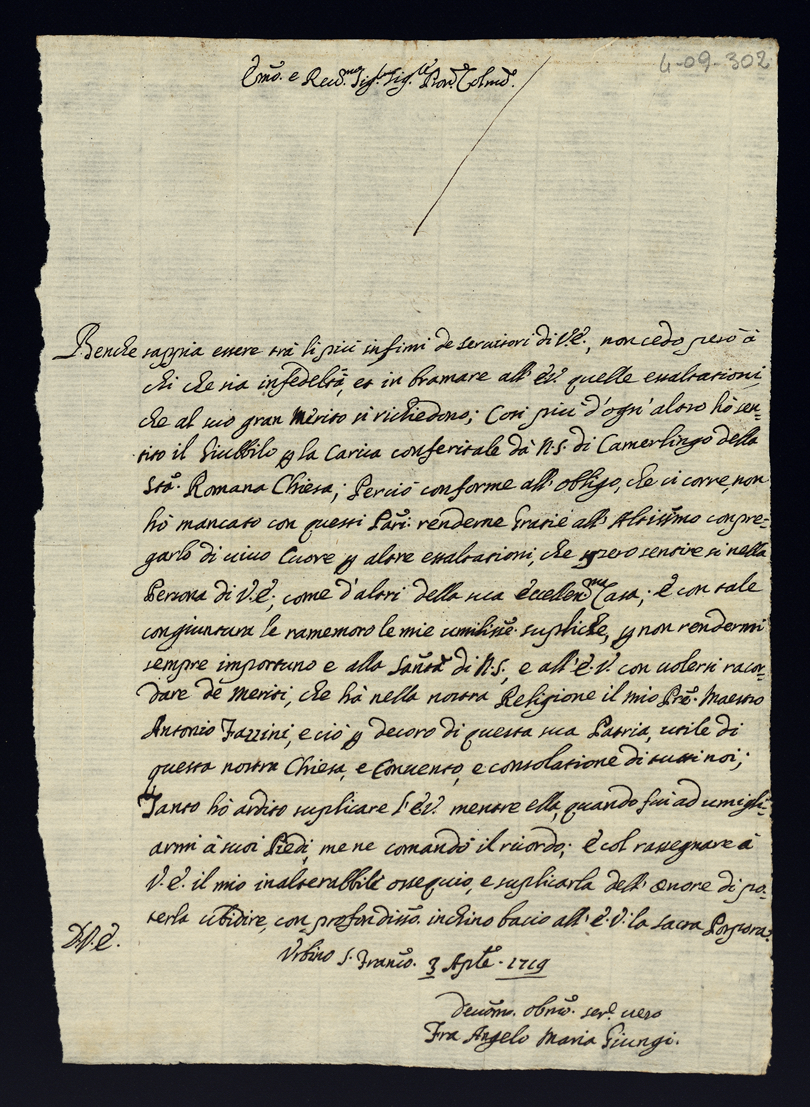 4-09-302
Em̃o. e Reud.mo Sig.r Sig.re Pron̄. Colmõ.
Benche sappia essere trà li più infimi de seruitori di V.E., non cedo però à
chi che sia in fedeltà, et in bramare all' E.V. quelle essaltationi,
che al suo gran Merito si richiedono; Così più d'ogn' altro hò sen=
tito il Giubbilo p la Carica conferitale dà N.S. di Camerlingo della
Stã. Romana Chiesa; Perciò conforme all' obligo, che ci corre, non
hò mancato con questi Pãri: renderne Grazie all' Altissimo con pre=
garlo di uiuo Cuore p altre essaltationi, che spero sentire sì nella
Persona di V.E., come d'altri della sua Eccellend.ma Casa; È con tale
congiuntura le ramemoro le mie umilissẽ. supliche, p non rendermi
sempre importuno e alla Santã di N.S., e all' E.V. con uolersi racor=
dare de Meriti, che hà nella nostra Religione il mio Prẽ. Maestro
Antonio Fazzini, e ciò p decoro di questa sua Patria, utile di
questa nostra Chiesa, e Conuento, e consolatione di tutti noi;
Tanto hò ardito suplicare l' E.V. mentre ella, quando fui ad umigli=
armi à suoi Piedi, me ne comandò il ricordo; È col rassegnare à
V.E. il mio inalterabbile ossequio, e suplicarla dell' onore di po=
terla ubidire, con profondissõ. inchino bacio all' E.V. la sacra Porpora.
D.V.E.
Urbino S. Francõ. 3 Aplẽ. 1719
Deuõmo. obmõ. ser.e uero
Fra Angelo Maria Giungi.